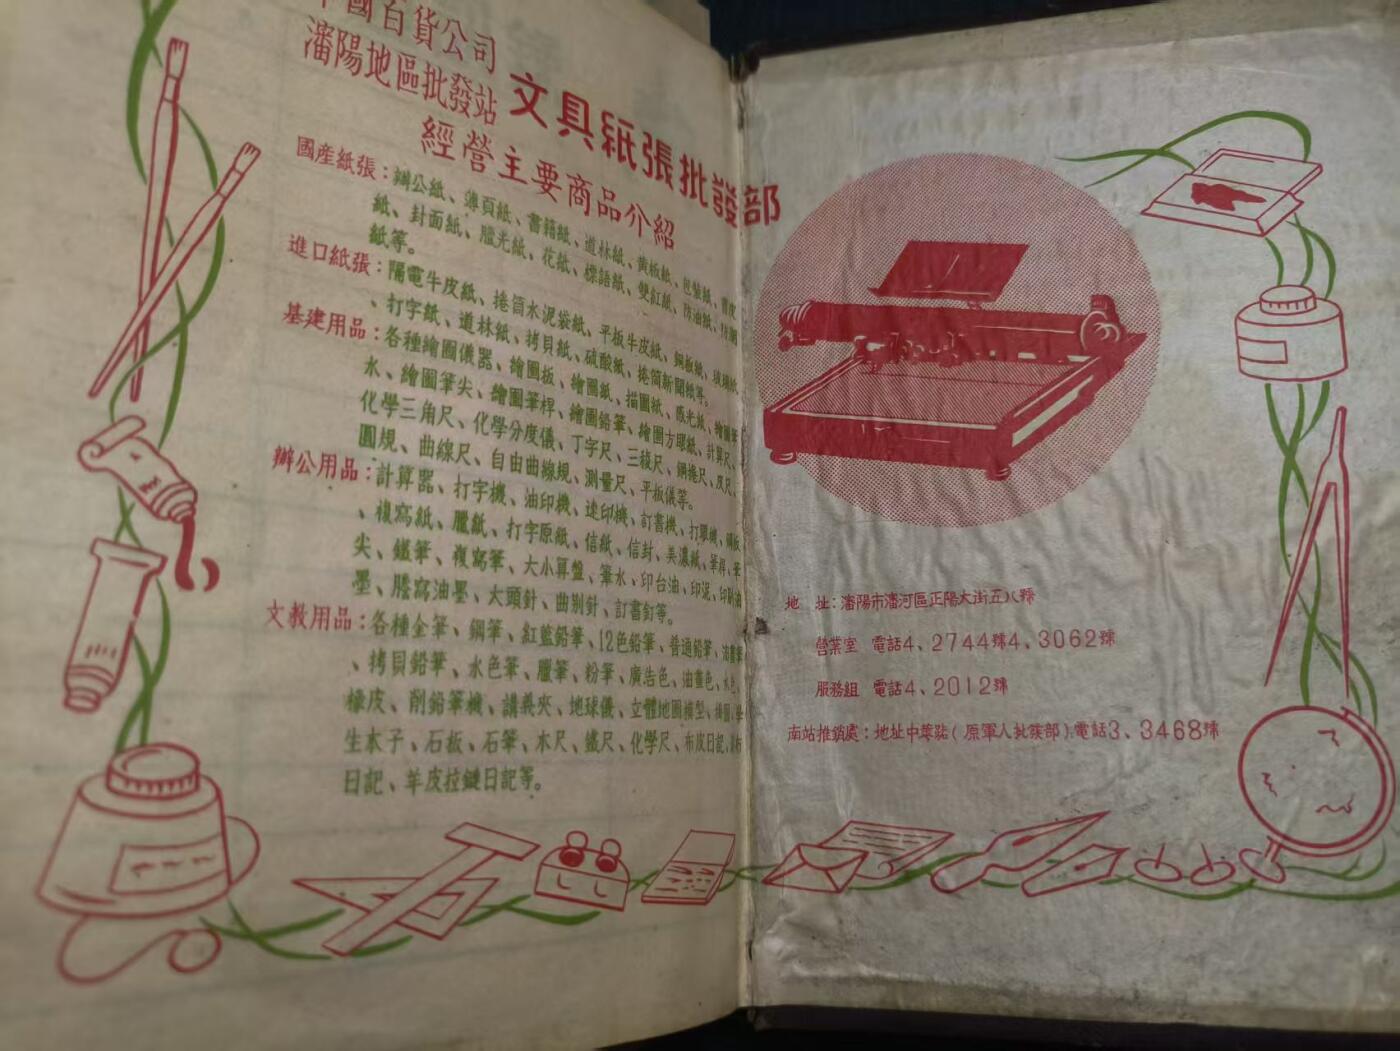 中國百貨公司
瀋陽地區批發站
文具紙張批發部
經營主要商品介紹
國産紙張：辦公紙、薄頁紙、書籍紙、道林紙、黄板紙、包裝紙、
紙、封面紙、臘光紙、花紙、標語紙、雙紅紙、防油紙、防潮
紙等。
進口紙張：隔電牛皮紙、捲筒水泥袋紙、平板牛皮紙、銅板紙、玻璃紙
、打字紙、道林紙、拷貝紙、硫酸紙、捲筒新聞紙等。
基建用品：各種繪圖儀器、繪圖板、繪圖紙、描圖紙、感光紙、繪圖筆
水、繪圖筆尖、繪圖筆桿、繪圖鉛筆、繪圖方眼紙、計算尺、
化學三角尺、化學分度儀、丁字尺、三稜尺、鋼捲尺、皮尺、
圓規、曲線尺、自由曲線規、測量尺、平板儀等。
辦公用品：計算器、打字機、油印機、速印機、訂書機、打眼機、鋼板
、複寫紙、臘紙、打字原紙、信紙、信封、美濃紙、筆桿、筆
尖、鐵筆、複寫筆、大小算盤、筆水、印台油、印泥、印刷油
墨、謄寫油墨、大頭針、曲別針、訂書釘等。
文教用品：各種金筆、鋼筆、紅藍鉛筆、12色鉛筆、普通鉛筆、油畫筆
、拷貝鉛筆、水色筆、臘筆、粉筆、廣告色、油畫色、水色、
橡皮、削鉛筆機、講義夾、地球儀、立體地圖模型、掛圖、學
生本子、石板、石筆、木尺、鐵尺、化學尺、布皮日記、
日記、羊皮拉鏈日記等。
地　址：瀋陽市瀋河區正陽大街五八號
營業室　電話4、2744號4、3062號
服務組　電話4、2012號
南站推銷處：地址中華路（原軍人批發部）電話3、3468號